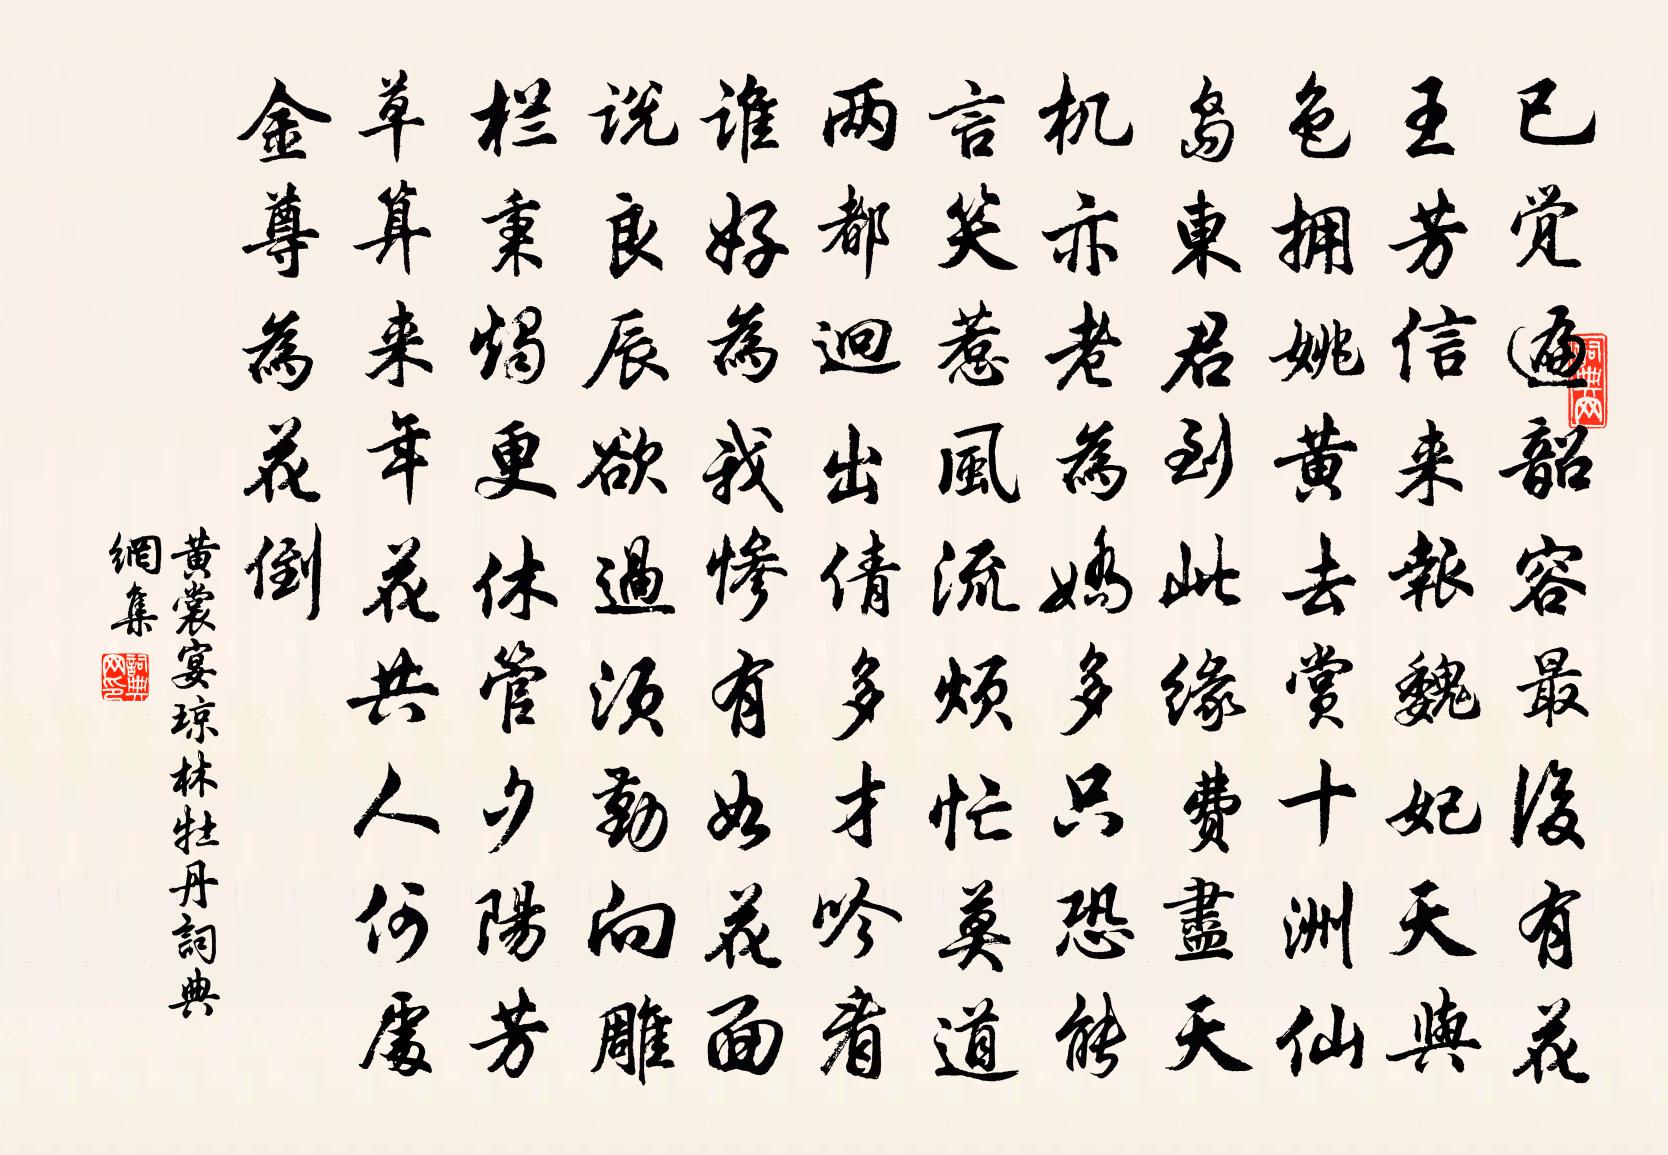 已觉遍韶容最後有花
王芳信来報魏妃天與
色拥姚黄去赏十洲仙
岛東君到此缘費盡天
机亦老為嬌多只恐能
言笑惹風流烦忙莫道
两都迥出倩多才吟看
谁好為我惨有如花面
说良辰欲過须勤向雕
栏秉燭更休管夕陽芳
草算来年花共人何處
金尊為花倒
黄裳宴琼林牡丹詞典
網集
詞典网
詞典网印